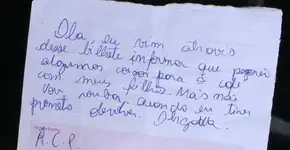 Ola eu vim atravis
desse bilhete informar que peguei
alguns para
com meus filhos. Mais não
vou roubar quando eu tiver
prometo devolver. Obrigada.
A.C.P.